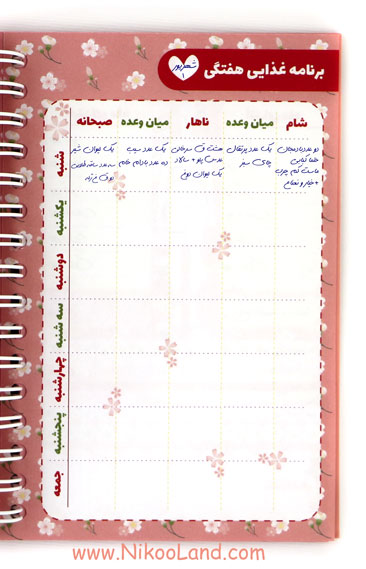 برنامه غذایی هفتگی
شهریور
۱
صبحانه
میان وعده
ناهار
میان وعده
شام
شنبه
یک لیوان شیر
سه عدد
یک عدد سیب
ده عدد بادام خام
هشت ق
عدس پلو + سالاد
یک لیوان دوغ
یک عدد پرتقال
چای سبز
دو عدد بادمجان
کبابی
ماست کم چرب
+ خیار و نعناع
یکشنبه
دوشنبه
سه شنبه
چهارشنبه
پنجشنبه
جمعه
www.NikooLand.com